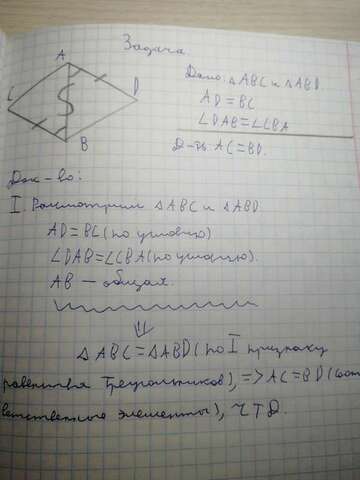 Задача.
A
Дано: △ABC и △ABD
C
D
AD=BC
∠DAB=∠CBA
B
Д-ть: AC=BD.
Док-во:
I. Рассмотрим △ABC и △ABD
AD=BC (по условию)
∠DAB=∠CBA (по условию).
AB — общая.
⇓
△ABC=△ABD (по I признаку
равенства треугольников), => AC=BD (соот
ветственные элементы), ЧТД.